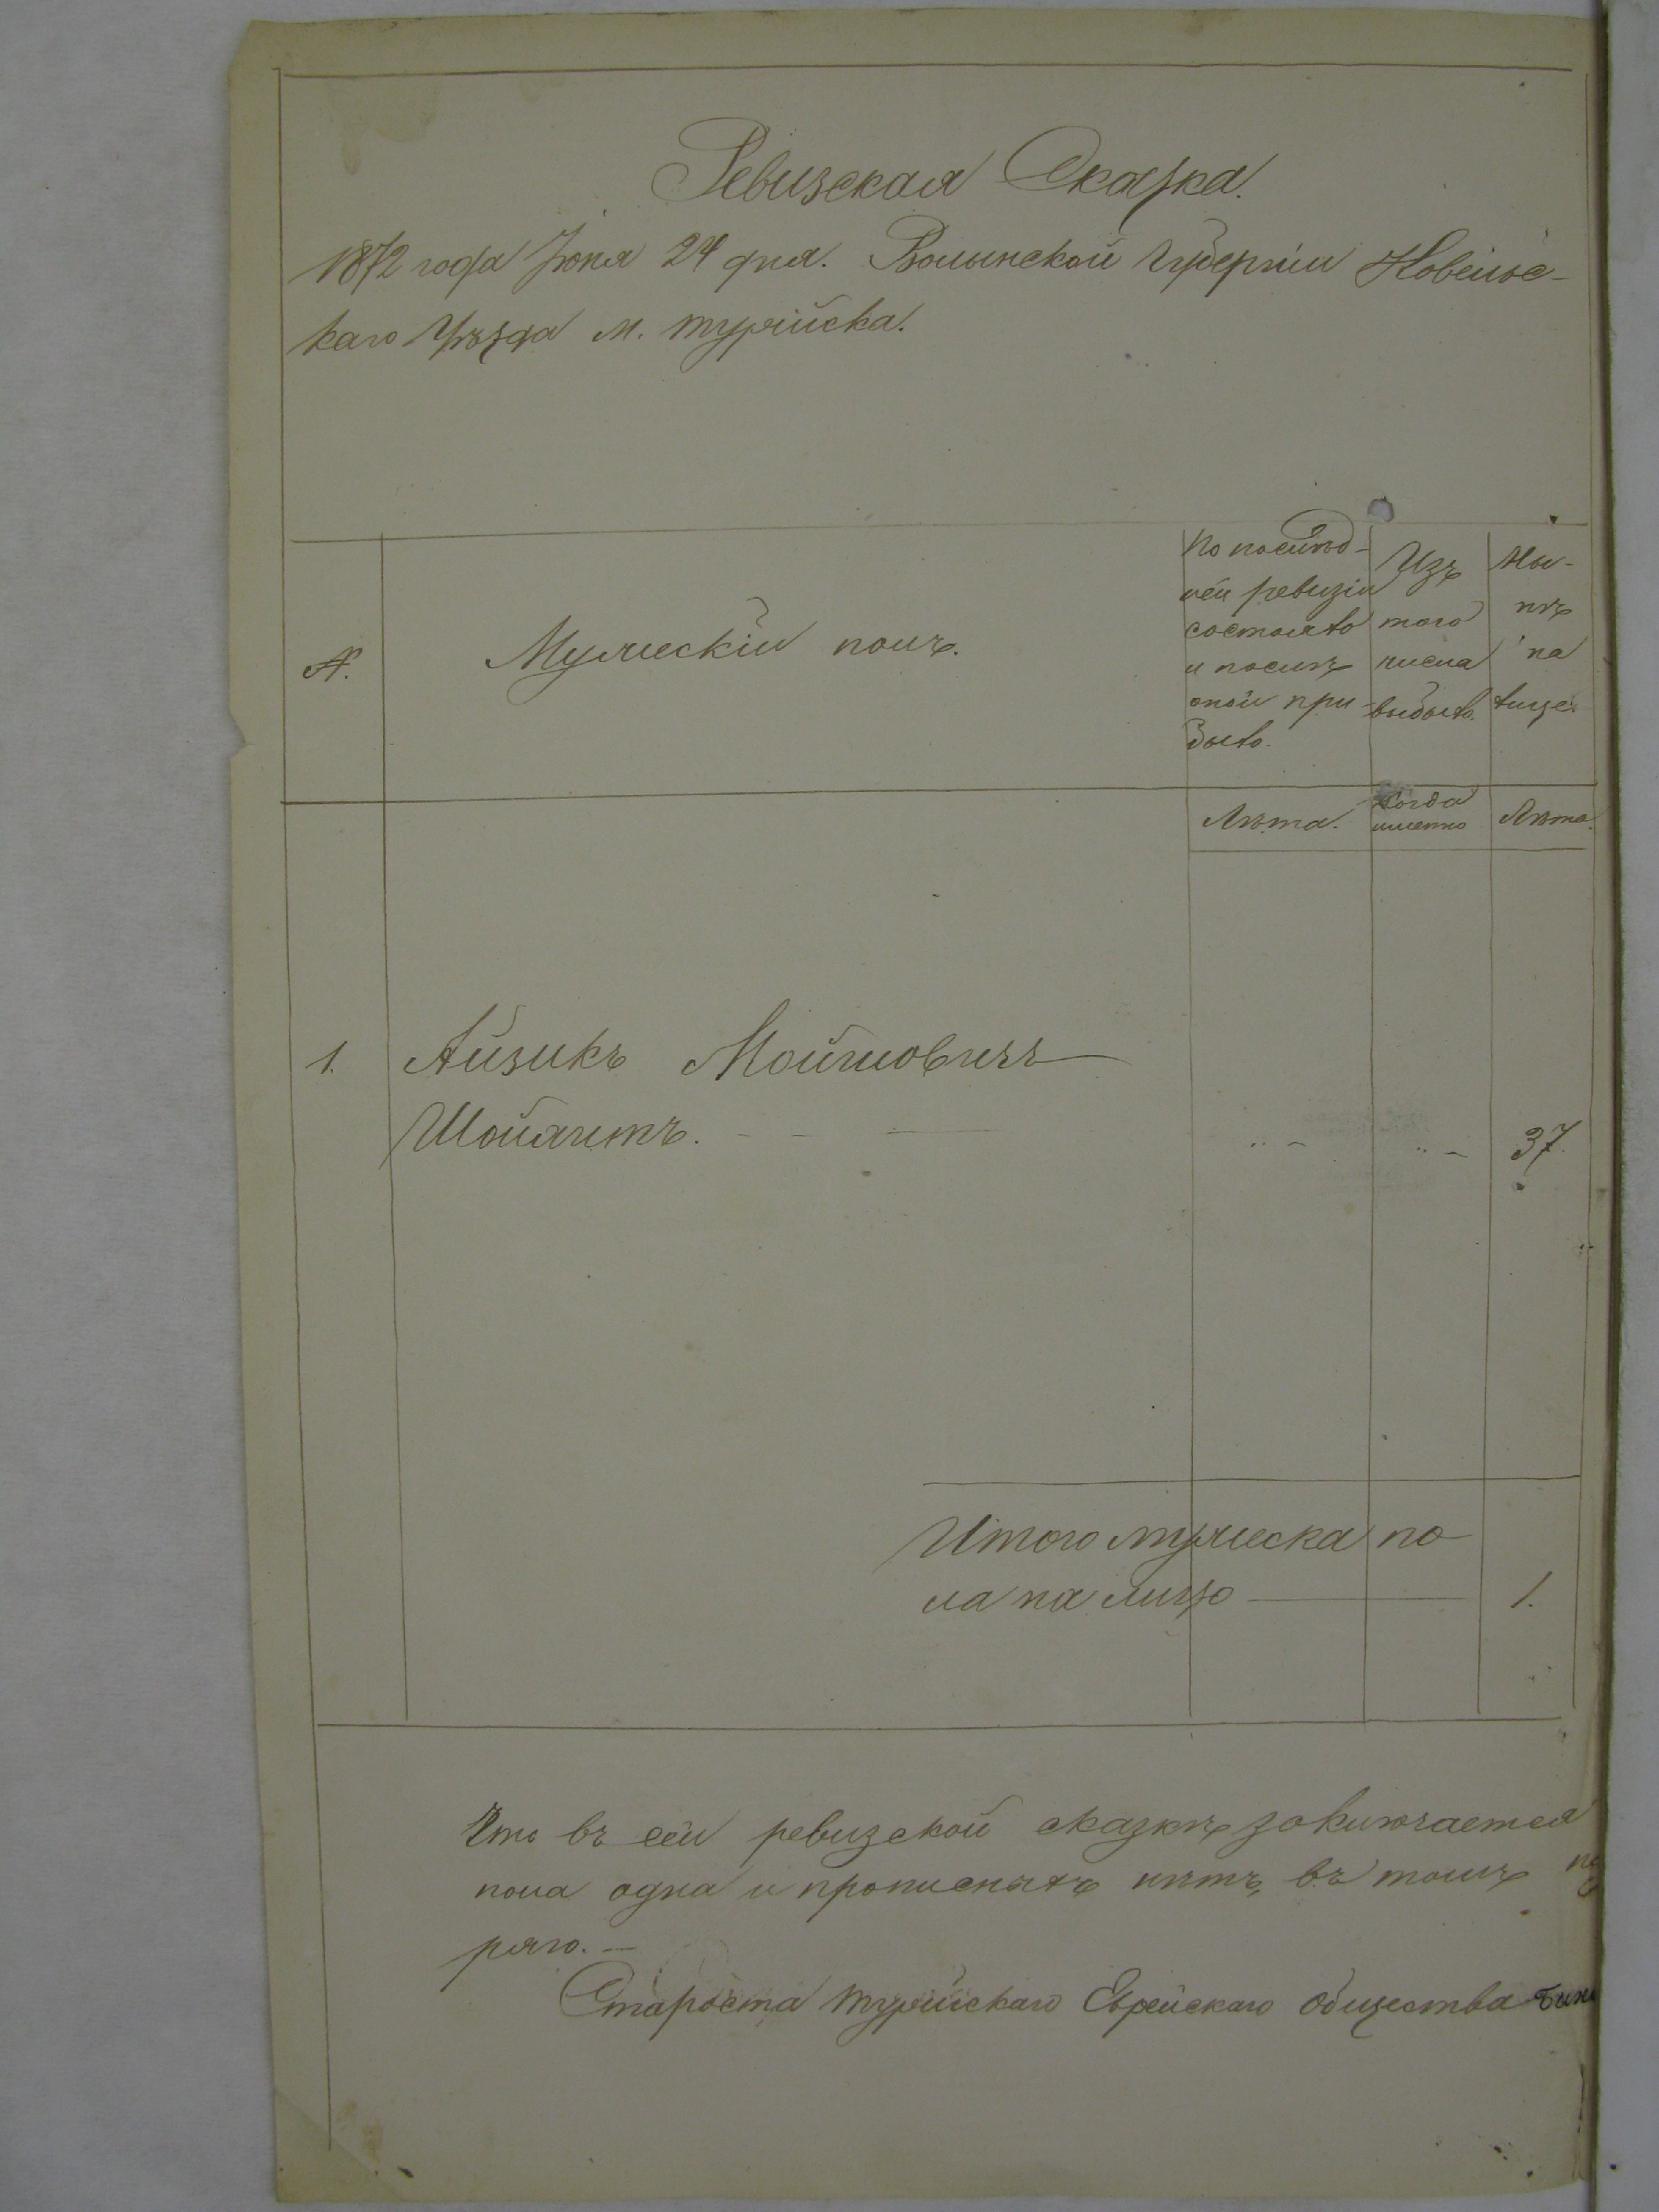 Ревизская Сказка.
1872 года Іюня 24 дня. Волынской Губерніи Ковельс-
каго Уѣзда м. Турійска.
№.
Мужескій полъ.
По послѣд-
ней ревизіи
состояло
и послѣ
оной при
было.
Изъ
того
числа
выбыло.
Ны-
нѣ
на
лице.
Лѣта.
Когда
именно
Лѣта.
1. Айзикъ Мойшовичъ
37.
Итого мужеска по
ла на лицо 1.
Что въ сей ревизской сказкѣ заключается
пола одна и прописныхъ нѣтъ, въ томъ
ряю.
Староста Турійскаго Еврейскаго Общества